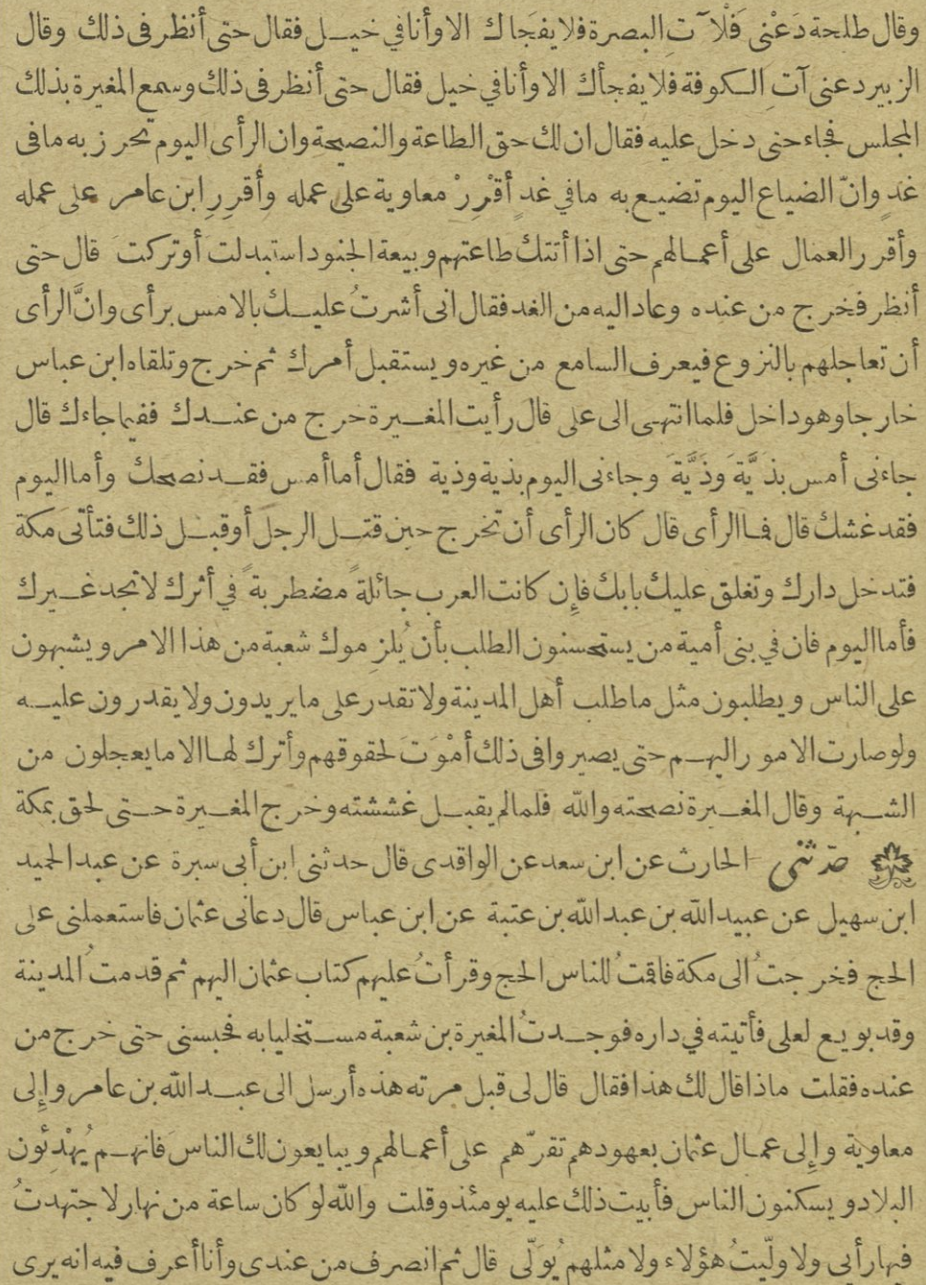 وقال طلحة دَعْنى فَلْآت البصرة فلا يفجاك الا وأنا في خيل فقال حتى أنظر في ذلك وقال
الزبير دعنى آت الكوفة فلا يفجأك الا وأنا في خيل فقال حتى أنظر في ذلك وسمع المغيرة بذلك
المجلس فجاء حتى دخل عليه فقال ان لك حق الطاعة والنصيحة وان الرأى اليوم تحرز به ما فى
غد وانّ الضياع اليوم تضيع به ما في غد أقْرِرْ معاوية على عمله وأقرِرِ ابن عامر على عمله
وأقرر العمال على أعمالهم حتى اذا أتتك طاعتهم وبيعة الجنود استبدلت أوتركت قال حتى
أنظر فخرج من عنده وعاد اليه من الغد فقال انى أشرتُ عليك بالامس برأى وانَّ الرأى
أن تعاجلهم بالنزوع فيعرف السامع من غيره ويستقبل أمرك ثم خرج وتلقاه ابن عباس
خارجا وهو داخل فلما انتهى الى على قال رأيت المغيرة خرج من عندك ففيما جاءك قال
جاءنى أمس بذَيَّةَ وَذَيَّةَ وجاءنى اليوم بذية وذية فقال أما أمس فقد نصحك وأما اليوم
فقد غشك قال فما الرأى قال كان الرأى أن تخرج حين قتل الرجل أوقبل ذلك فتأتى مكة
فتدخل دارك وتغلق عليك بابك فإن كانت العرب جائلةً مضطربةً في أثرك لا تجد غيرك
فأما اليوم فان في بنى أمية من يستحسنون الطلب بأن يُلزموك شعبة من هذا الامر ويشبهون
على الناس ويطلبون مثل ما طلب أهل المدينة ولا تقدر على ما يريدون ولا يقدرون عليه
ولوصارت الامور اليهم حتى يصيروا فى ذلك أمْوَتَ لحقوقهم وأترك لها الا ما يعجلون من
الشبهة وقال المغيرة نصحته والله فلما لم يقبل غششته وخرج المغيرة حتى لحق بمكة
حدثنى الحارث عن ابن سعد عن الواقدى قال حدثنى ابن أبى سبرة عن عبد الحميد
ابن سهيل عن عبيد الله بن عبد الله بن عتبة عن ابن عباس قال دعانى عثمان فاستعملنى على
الحج فخرجتُ الى مكة فاقمتُ للناس الحج وقرأتُ عليهم كتاب عثمان اليهم ثم قدمتُ المدينة
وقد بويع لعلى فأتيته في داره فوجدتُ المغيرة بن شعبة مستخليا به فحبسنى حتى خرج من
عنده فقلت ماذا قال لك هذا فقال قال لى قبل مرته هذه أرسل الى عبد الله بن عامر وإلى
معاوية وإلى عمال عثمان بعهودهم تقرّهم على أعمالهم ويبايعون لك الناس فانهم يُهْدِئون
البلاد ويسكنون الناس فأبيت ذلك عليه يومئذ وقلت والله لو كان ساعة من نهار لاجتهدتُ
فيها رأيى ولا ولّيتُ هؤلاء ولا مثلهم يُوَلّى قال ثم انصرف من عندى وأنا أعرف فيه انه يرى